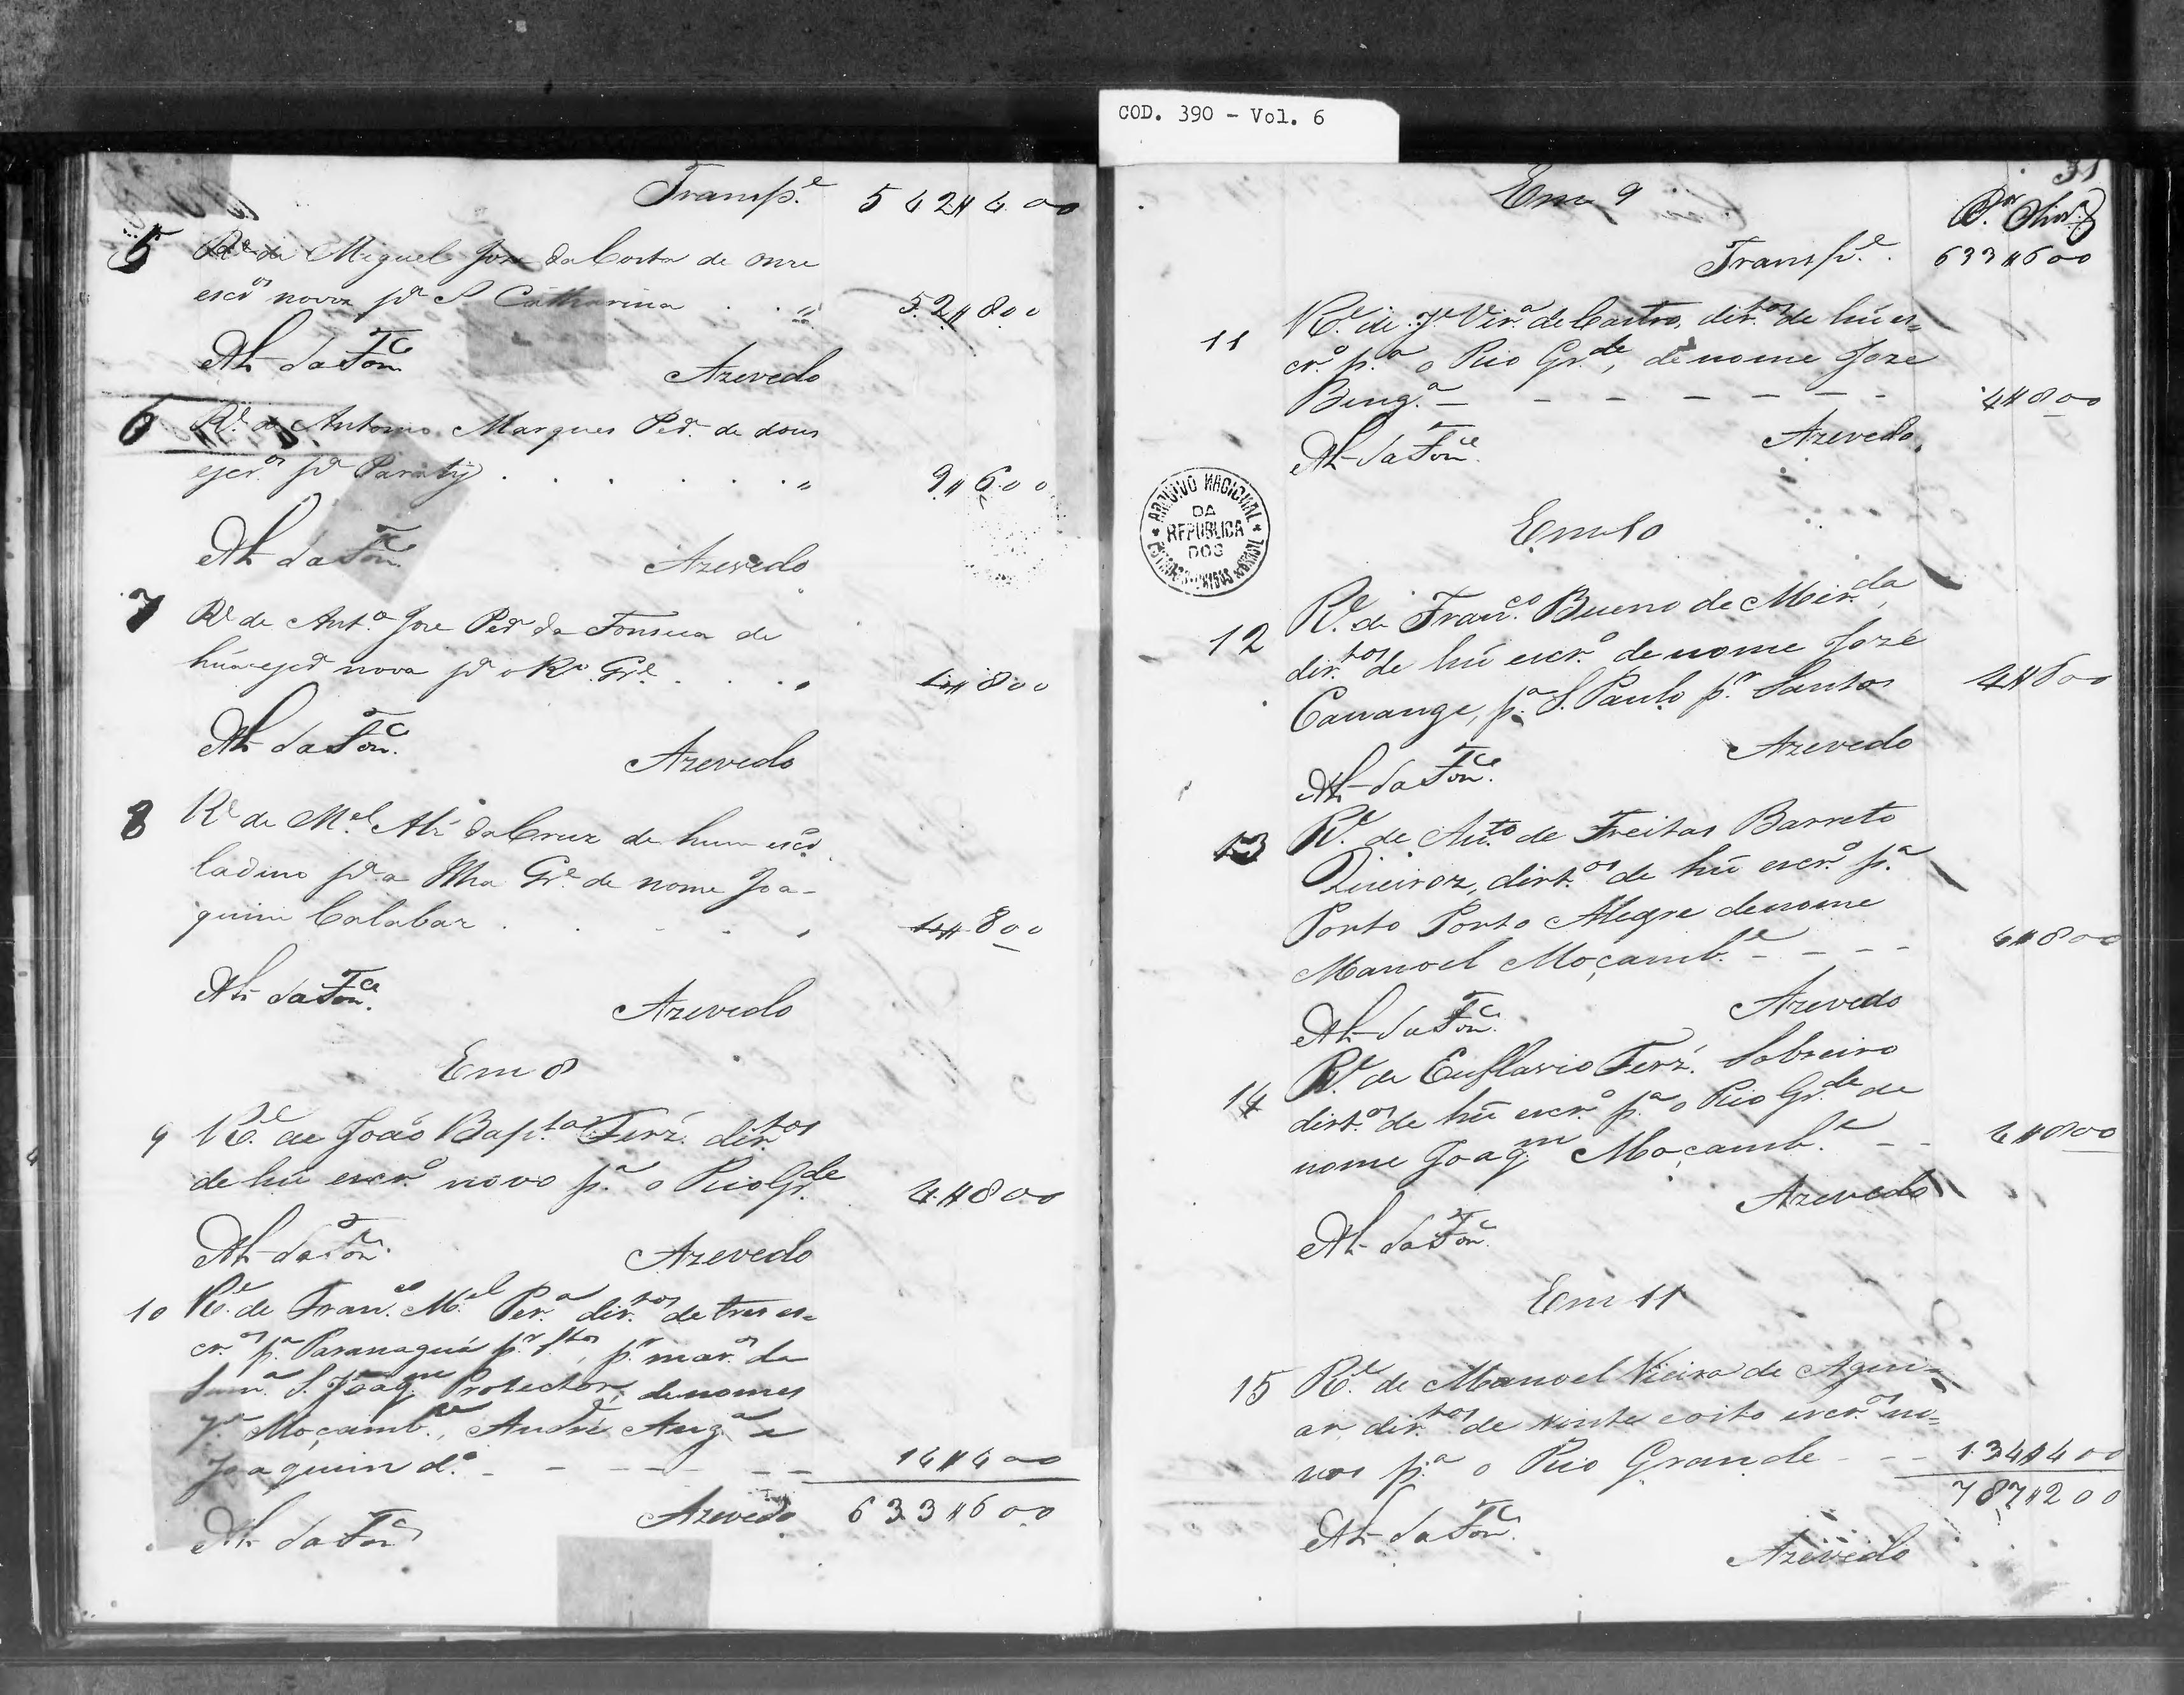 COD. 390 - Vol. 6
Transp.e 542#400
5 R.e de Miguel Joze da Costa de onze
escr.os novos p.a S. Catharina . . " 52#800
Az. da Fon.ca Azevedo
6 R.e de Antonio Marques Per.a de dous
escr.os p.a Paratÿ . . . . . . " 9#600
Az. da Fon.ca Azevedo
7 R.e de Ant.o Joze Per.a da Fonseca de
húa escr.a nova p.a o R.o Gr.e . . . 4#800
Az. da Fon.ca Azevedo
8 R.e de M.el Alz' da Cruz de hum escr.o
ladino p.a a Ilha Gr.e de nome Joa-
quim Calabar . . . . . 4#800
Az. da Fon.ca Azevedo
Em 8
9 R.e de João Bap.ta Ferz. dir.tos
de hũ escr.o novo p.a o Rio Gr.de 4#800
Az. da Fon.ca Azevedo
10 R.e de Fran.co M.el Per.a dir.tos de tres es=
cr.os p.a Paranaguá p.r S.tos, p.r mar. da
S. Joaq.m Protector, de nomes
J.e Moçamb.e, André Ang.a e
Joaquim d.o - - - - - - 14#400
Az. da Fon.ca Azevedo 633#600
31
Em 9
Transp.e 633#600
11 R.e de J.e Vir.a de Castro, dir.tos de hú es=
cr.o p.a o Rio Gr.de, de nome Joze
Beng.a - - - - - - - 4#800
Az. da Fon.ca Azevedo
ARQUIVO NACIONAL
DA
REPUBLICA
DOS
ESTADOS UNIDOS BRASIL
Em 10
12 R.e de Fran.co Bueno de Mir.da,
dir.tos de hú escr.o de nome Jozé
Cassange, p.a S. Paulo p.r Santos 4#800
Az. da Fon.ca Azevedo
13 R.e de Ant.o de Freitas Barreto
Queiroz, dirt.os de hũ escr.o p.a
Porto Porto Alegre de nome
Manoel Moçamb.e - - - 4#800
Az. da Fon.ca Azevedo
14 R.e de Euflavio Ferz. Sobreiro
dirt.os de hũ escr.o p.a o Rio Gr.de de
nome Joaq.m Moçamb.e - - 4#800
Az. da Fon.ca Azevedo
Em 11
15 R.e de Manoel Vieira de Agui=
ar dir.tos de vinte e oito escr.os no=
vos p.a o Rio Grande - - - 134#400
787#200
Az. da Fon.ca Azevedo